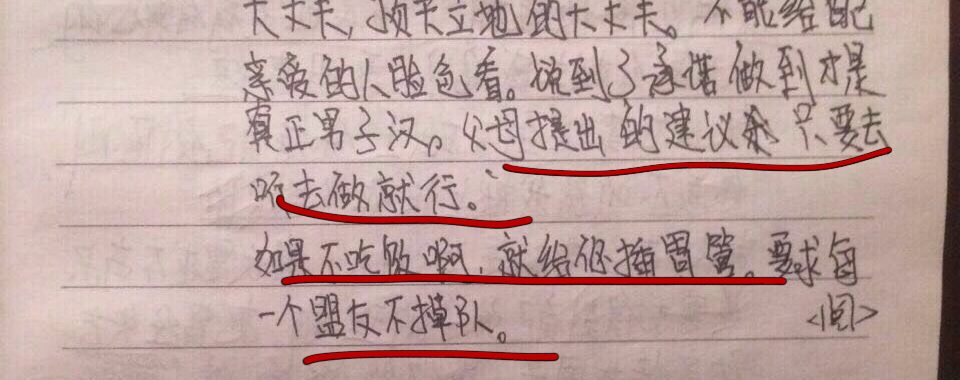 大丈夫,顶天立地的大丈夫。不能给配
亲爱的人脸色看。说到了承诺做到才是
真正男子汉。父母提出的建议余只要去
听去做就行。
如果不吃饭啊,就给你插胃管。要求每
一个盟友不掉队。 <阅>